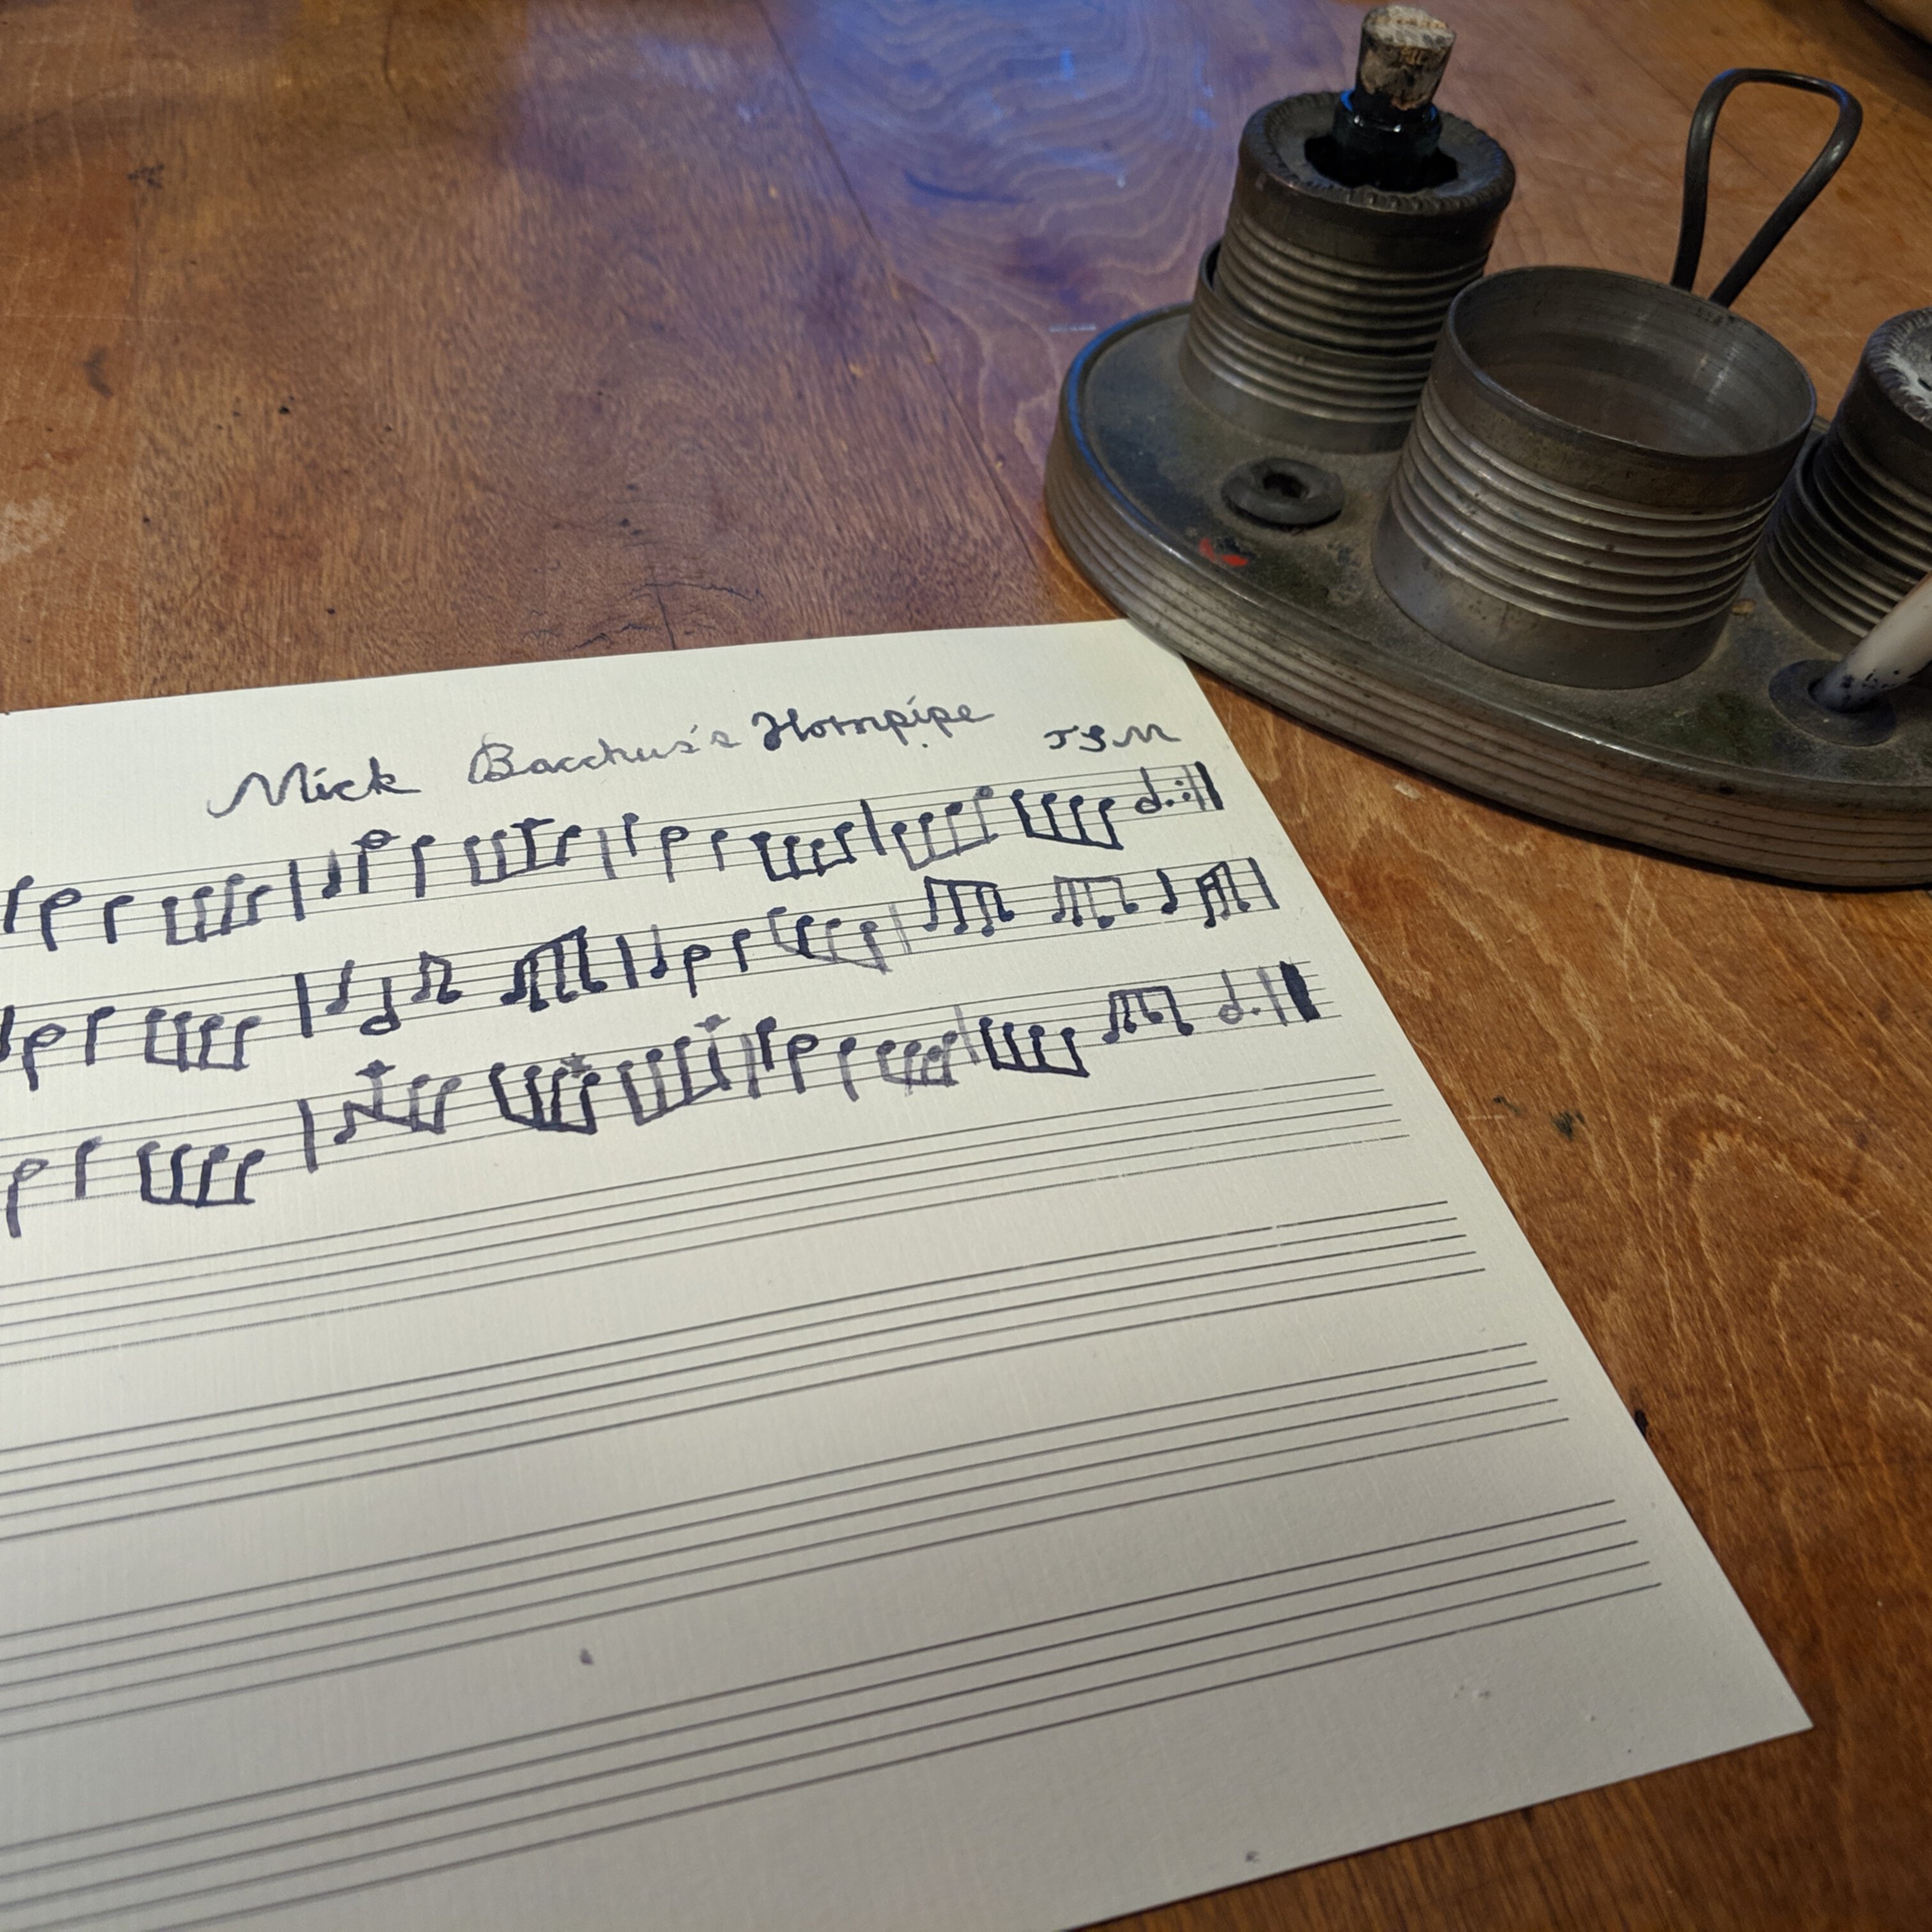 Mick Bacchus's Hornpipe
JSM